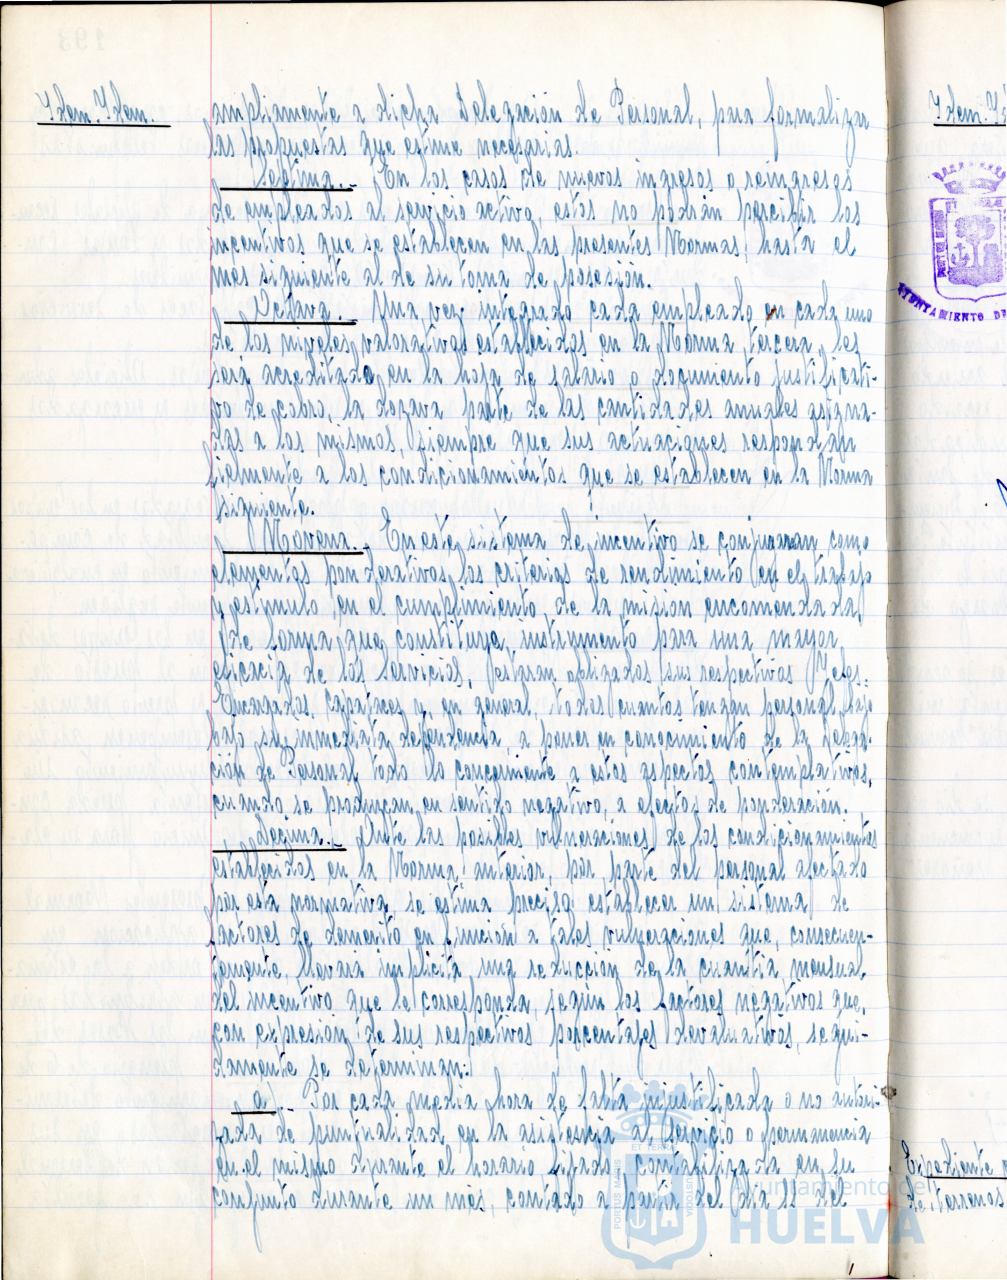 Idem. Idem.
ampliamente a dicha Delegación de Personal, para formalizar
las propuestas que estime necesarias.
Séptima.- En los casos de nuevos ingresos o reingresos
de empleados al servicio activo, estos no podrán percibir los
incentivos que se establecen en las presentes Normas, hasta el
mes siguiente al de su toma de posesión.
Octava.- Una vez integrado cada empleado en cada uno
de los niveles valorativos establecidos en la Norma tercera, les
será acreditado, en la hoja de salario o documento justificati-
vo de cobro, la dozava parte de las cantidades anuales asigna-
das a los mismos, siempre que sus actuaciones respondan
fielmente a los condicionamientos que se establecen en la Norma
siguiente.
Novena.- En este sistema de incentivo se conjugaran como
elementos ponderativos, los criterios de rendimiento en el trabajo
y estímulo en el cumplimiento de la misión encomendada,
de forma que constituya instrumento para una mayor
eficacia de los Servicios, estarán obligados sus respectivos Jefes,
Encargados, Capataces y en general, todos cuantos tengan personal bajo
su inmediata dependencia, a poner en conocimiento de la Delega-
ción de Personal todo lo concerniente a estos aspectos contemplativos,
cuando se produzcan en sentido negativo, a efectos de ponderación.
Décima.- Ante las posibles vulneraciones de los condicionamientos
establecidos en la Norma anterior, por parte del personal afectado
por esta normativa, se estima preciso establecer un sistema de
factores de demérito en función a tales vulneraciones que, consecuen-
temente, llevará implícita una reducción de la cuantía mensual
del incentivo que le corresponda, según los factores negativos que,
con expresión de sus respectivos porcentajes devaluativos, segui-
damente se determinan:
a) Por cada media hora de falta injustificada o no autori-
zada de puntualidad en la asistencia al servicio o permanencia
en el mismo durante el horario fijado, contabilizada en su
conjunto durante un mes, contado a partir del día 15 del
Idem. Id
AYUNTAMIENTO DE
Expediente
de terrenos
Ayuntamiento de
HUELVA